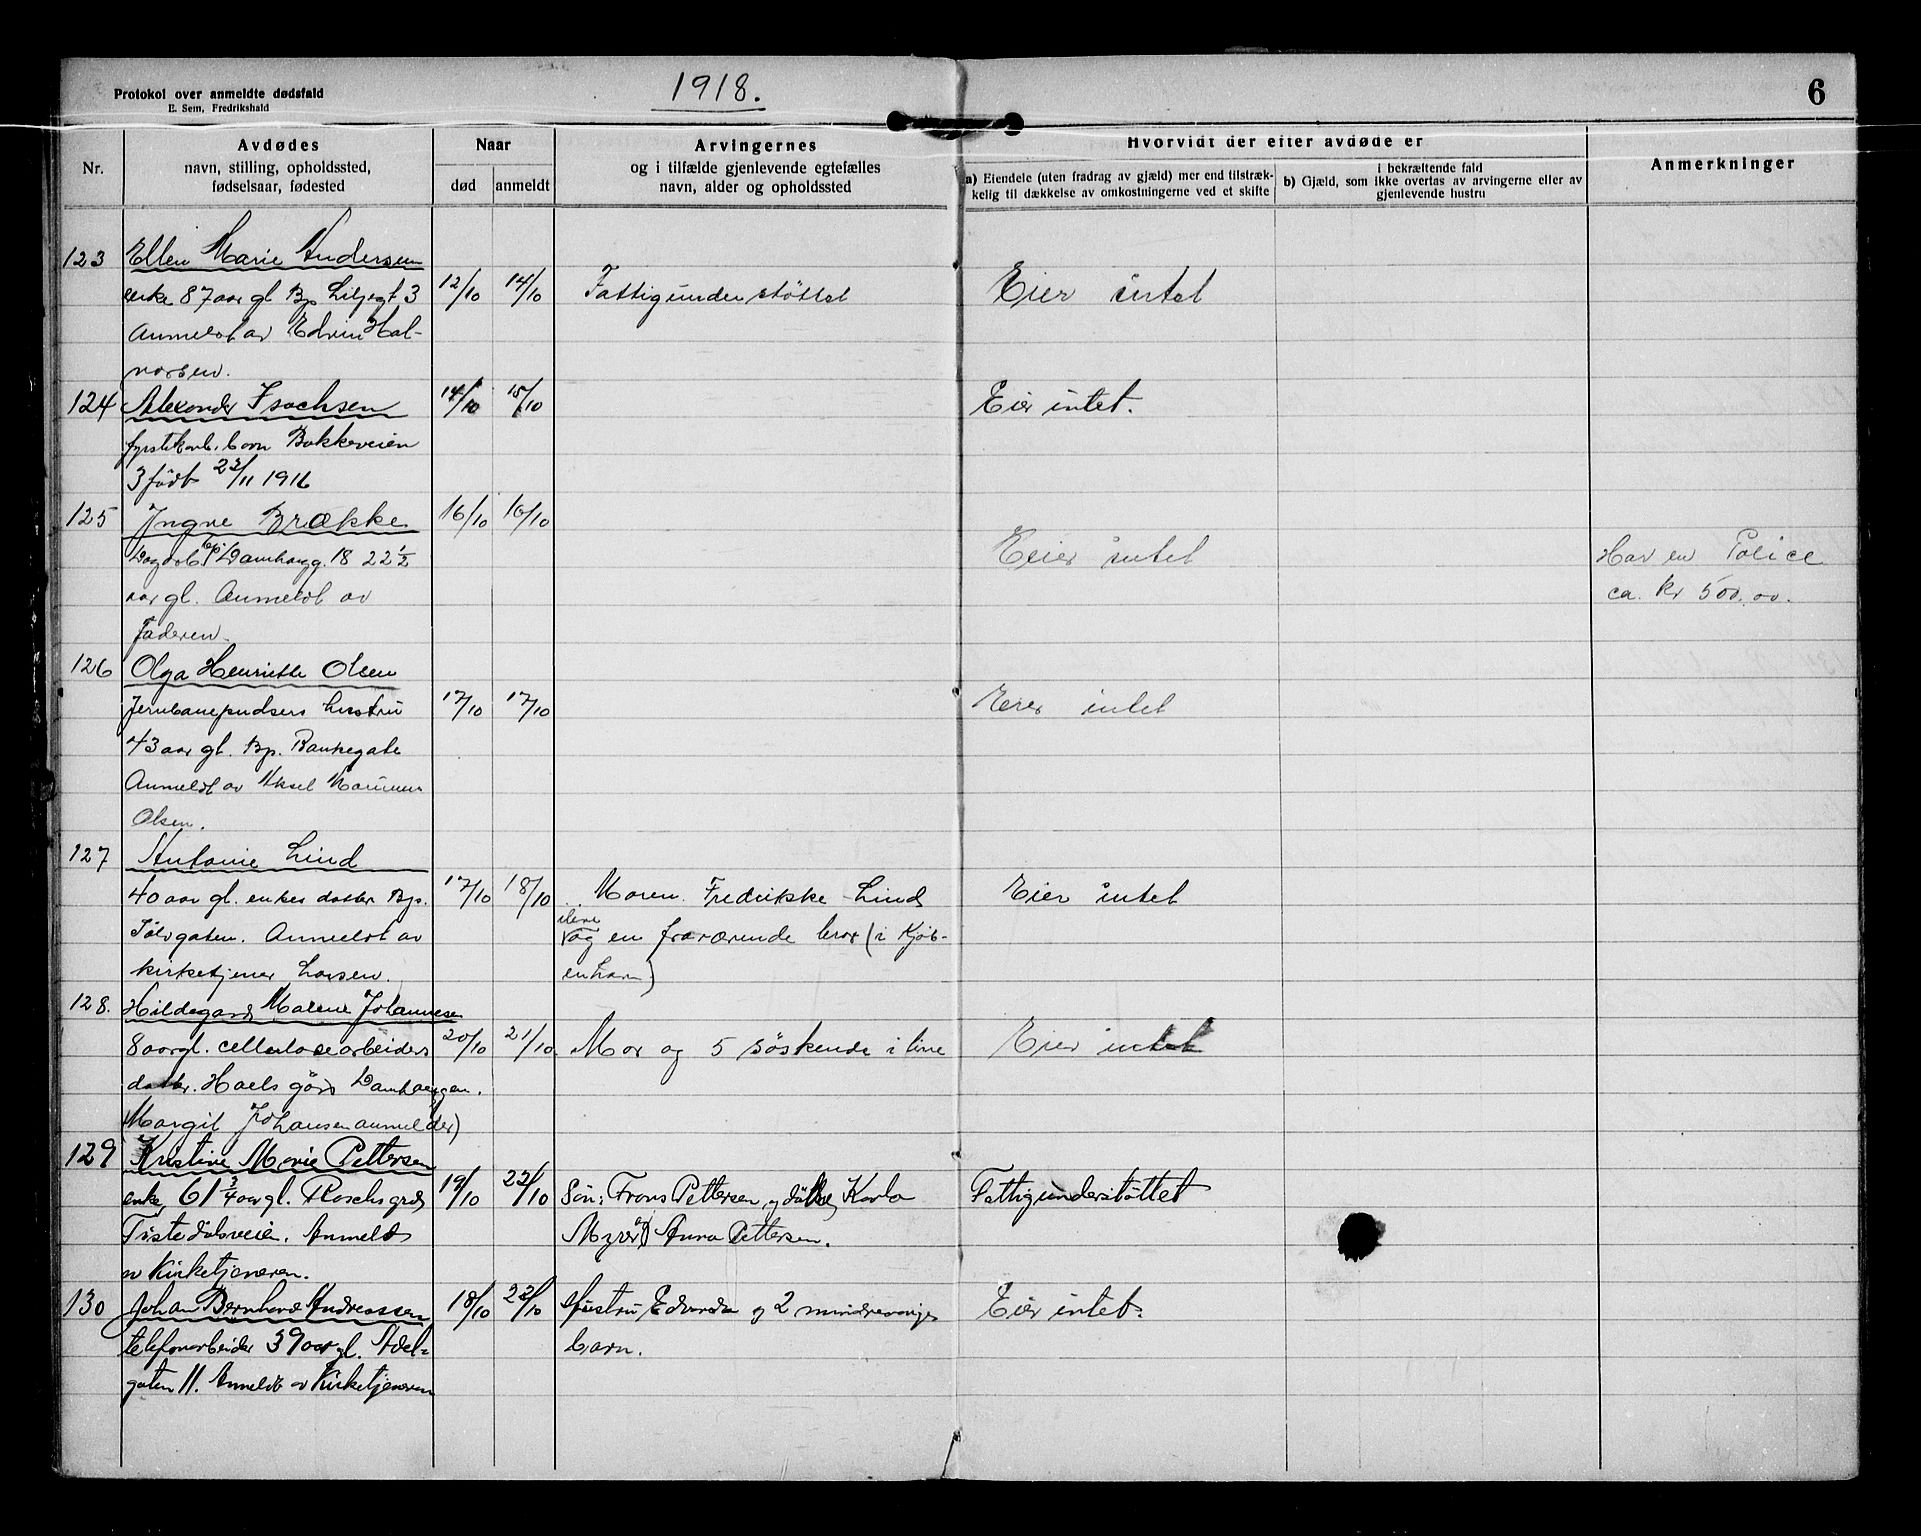 Protokol over anmeldte dødsfald
E. Sem, Fredrikshald
1918.
6
Nr.
Avdødes
navn, stilling, opholdssted,
fødselsaar, fødested
Naar
død
anmeldt
Arvingernes
og i tilfælde gjenlevende egtefælles
navn, alder og opholdssted
Hvorvidt der efter avdøde er
a) Eiendele (uten fradrag av gjæld) mer end tilstræk-
kelig til dækkelse av omkostningerne ved et skifte
i bekræftende fald
b) Gjæld, som ikke overtas av arvingerne eller av
gjenlevende hustru
Anmerkninger
123 Ellen Marie Andersen
enke 87 aar gl Bp Liljegt 3 12/10 14/10 Fattigunderstöttet Eier intet
Anmeldt av Edvin Hal-
vorsen.
124 Alexander Isachsen 14/10 15/10 Eier intet.
fyrstikarb. barn Bakkeveien
3 födt 23/11 1916
125 Yngve Brække 16/10 16/10
Dagarb. Bp. Damhaugg. 18 22 1/2 Eier intet Har en Police
aar gl. Anmeldt av ca. kr 500,00.
Faderen.
126 Olga Henriette Olsen
Jernbanepudsers hustru 17/10 17/10 Eier intet
43 aar gl. Bp. Bankegate
Anmeldt av Aksel
Olsen.
127 Antonie Lind
40 aar gl. enkes datter Bp. 17/10 18/10 Maren Fredrikke Lind Eier intet
Tölvgaten. Anmeldt av og en fraværende bror (i Kjöb-
kirketjener Larsen. enhavn)
128. Hildegard Malene Johannesen
8 aar gl. cellulosearbeiders 20/10 21/10 Mor og 5 söskende i live Eier intet
datter. Haels gård Damhauggen.
Margit Johansen anmelder)
129 Kristine Marie Pettersen
enke 61 3/4 aar gl. 19/10 22/10 Sön: Frans Pettersen, og döttre Karla Fattigunderstöttet
Tistedalsveien. Anmeldt Myrer og Anna Pettersen.
av Kirketjeneren.
130 Johan Bernhard Andreassen 18/10 22/10 Hustru Edvarda og 2 mindreaarige Eier intet.
telefonarbeider 39 aar gl. Adel- barn.
gaten 11. Anmeldt av Kirketjeneren